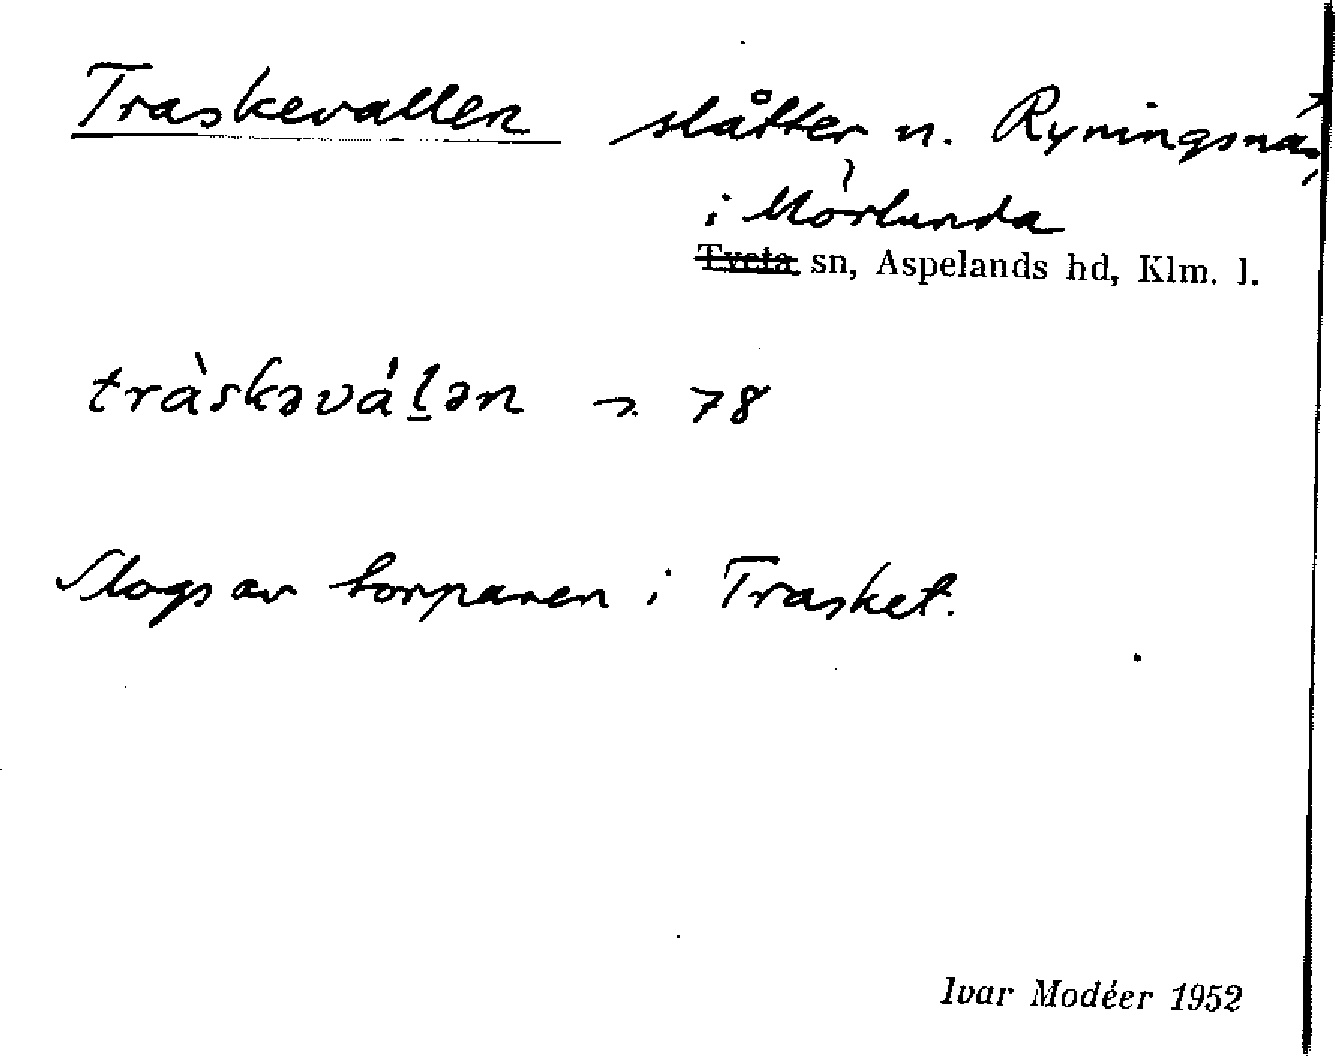 Traskevallen slåtter n. Ryningsnäs,
i Mörlunda
Tveta sn, Aspelands hd, Klm. l.
tràskəvál̠ən 78
Slogs av torparen i Trasket.
Ivar Modéer 1952